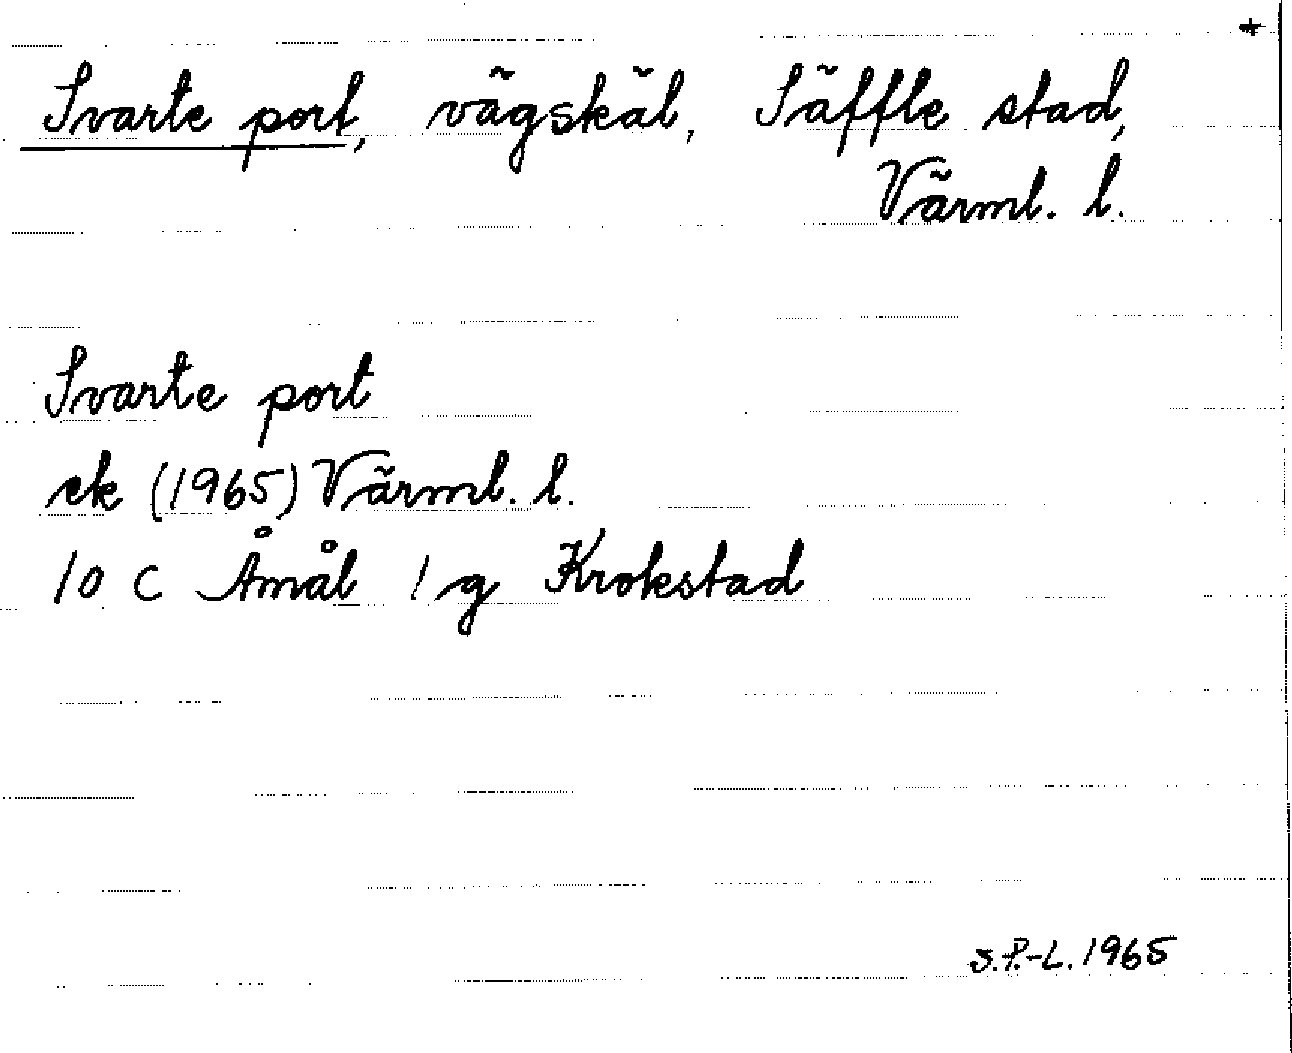 +
Svarte port, vägskäl, Säffle stad,
Värml. l.
Svarte port
ek (1965) Värml. l.
10 C Åmål 1 g Krokstad
S.P.-L. 1965